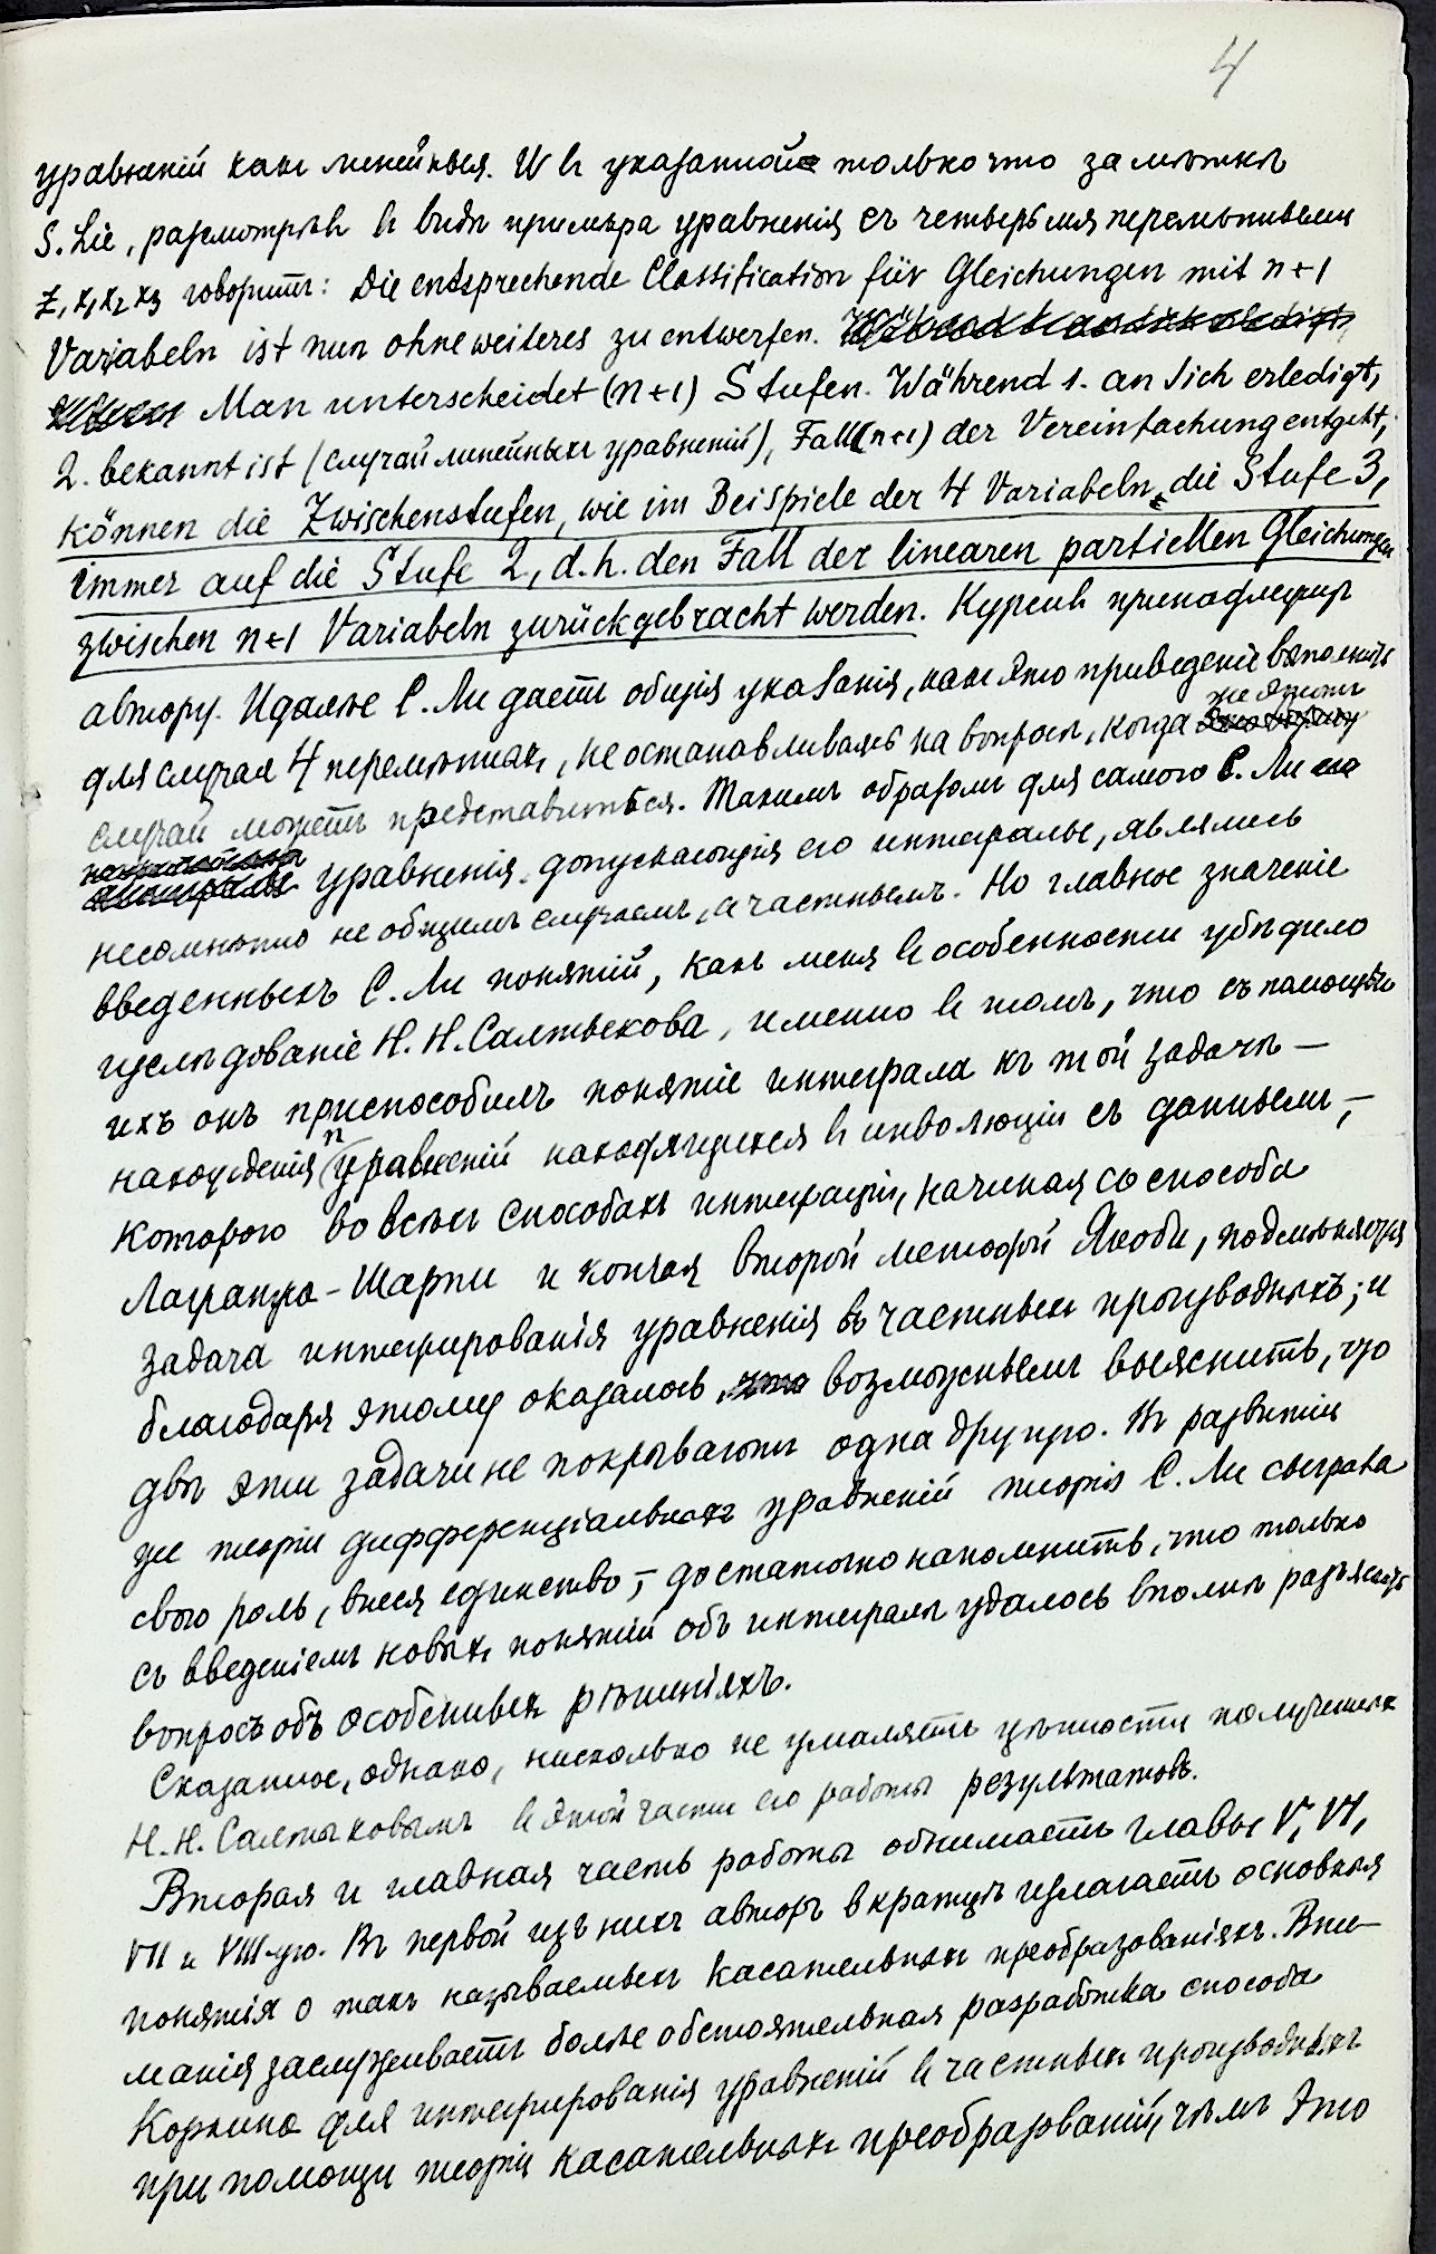 4
уравненій какъ линейныя. И въ указанной только что замѣткѣ
S. Lie, разсмотрѣвъ въ видѣ примѣра уравненія съ четырьмя перемѣнными
z, x₁ x₂ x₃ говоритъ: Die entsprechende Classification für Gleichungen mit n+1
Variabeln ist nun ohne weiteres zu entwerfen.
Man unterscheidet (n+1) Stufen. Während 1. an sich erledigt,
2. bekannt ist (случай линейныхъ уравненій), Fall (n+1) der Vereinfachung entgeht,
können die Zwischenstufen, wie im Beispiele der 4 Variabeln, die Stufe 3,
immer auf die Stufe 2, d.h. den Fall der linearen partiellen Gleichungen
zwischen n+1 Variabeln zurückgebracht werden. Курсивъ принадлежитъ
автору. И далѣе С. Ли даетъ общія указанія, какъ это приведеніе выполнить
для случая 4 перемѣнныхъ, не останавливаясь на вопросѣ, когда же этотъ
случай можетъ представиться. Такимъ образомъ для самого С. Ли
уравненія, допускающія его интегралы, являлись
несомнѣнно не общимъ случаемъ, а частнымъ. Но главное значеніе
введенныхъ С. Ли понятій, какъ меня въ особенности убѣдило
изслѣдованіе Н. Н. Салтыкова, именно въ томъ, что съ помощью
ихъ онъ приспособилъ понятіе интеграла къ той задачѣ —
нахожденія n уравненій находящихся въ инволюціи съ данными, —
которою во всѣхъ способахъ интеграціи, начиная со способа
Лагранжа-Шарпи и кончая второй методой Якоби, подмѣняется
задача интегрированія уравненія въ частныхъ производныхъ; и
благодаря этому оказалось возможнымъ выяснить, что
двѣ эти задачи не покрываютъ одна другую. Въ развитіи
же теоріи дифференціальныхъ уравненій теорія С. Ли сыграла
свою роль, внеся единство, — достаточно напомнить, что только
съ введеніемъ новыхъ понятій объ интегралѣ удалось вполнѣ разъяснить
вопросъ объ особенныхъ рѣшеніяхъ.
Сказанное, однако, нисколько не умаляетъ цѣнности полученныхъ
Н. Н. Салтыковымъ въ этой части его работы результатовъ.
Вторая и главная часть работы обнимаетъ главы V, VI,
VII и VIII-ую. Въ первой изъ нихъ авторъ вкратцѣ излагаетъ основныя
понятія о такъ называемыхъ касательныхъ преобразованіяхъ. Вни-
манія заслуживаетъ болѣе обстоятельная разработка способа
Коркина для интегрированія уравненій въ частныхъ производныхъ
при помощи теоріи касательныхъ преобразованій, чѣмъ это